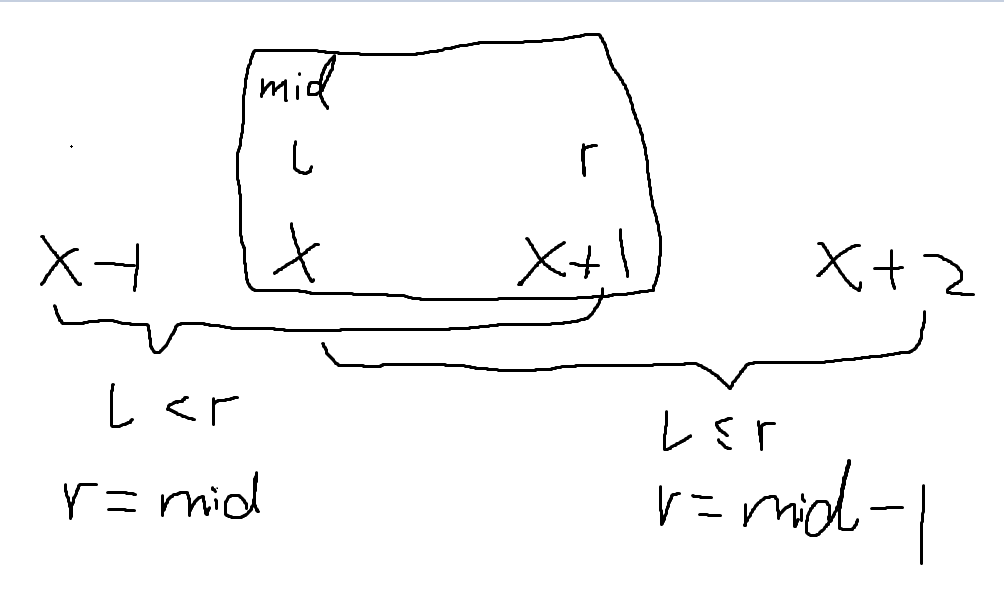 mid
L r
X-1 X X+1 X+2
L < r
L ≤ r
r = mid
r = mid - 1